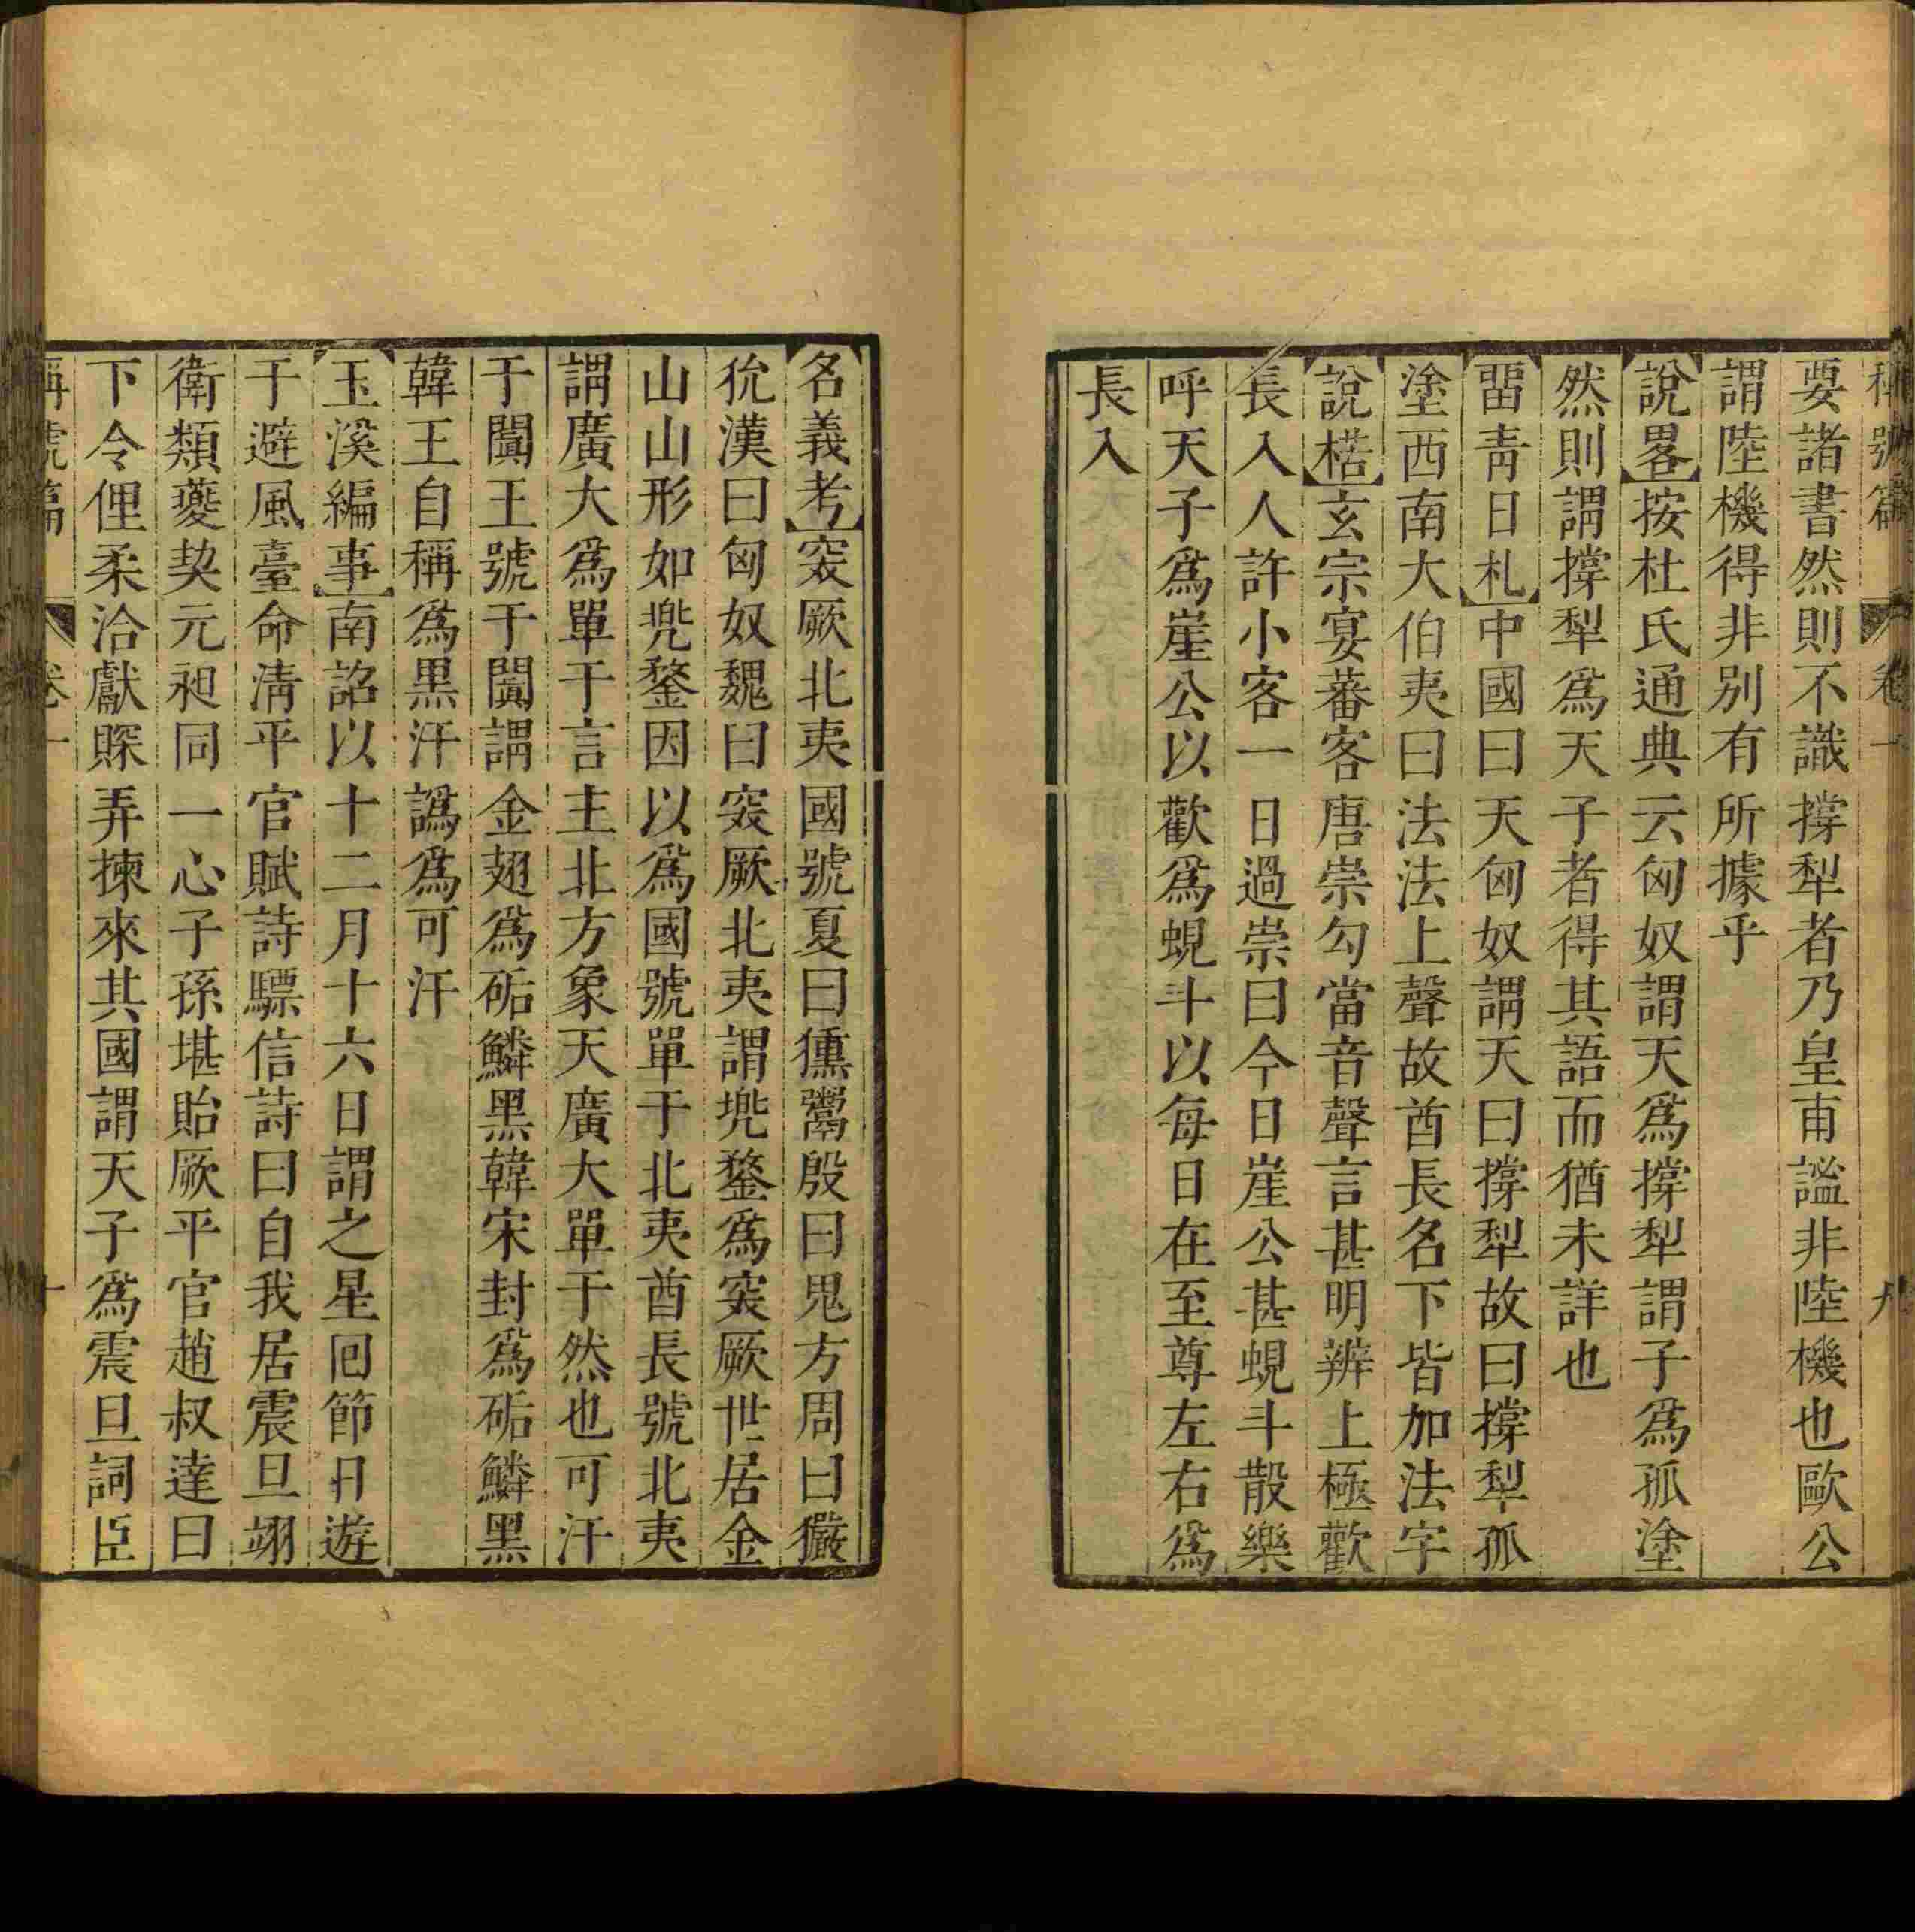 稱號篇 卷一 九
要諸書然則不識撐犁者乃皇甫謐非陸機也歐公
謂陸機得非別有所據乎
說畧按杜氏通典云匈奴謂天爲撐犁謂子爲孤塗
然則謂撐犁爲天子者得其語而猶未詳也
畱靑日札中國曰天匈奴謂天曰撐犁故曰撐犁孤
塗西南大伯夷曰法法上聲故酋長名下皆加法字
說楛玄宗宴蕃客唐崇勾當音聲言甚明辨上極歡
長入人許小客一日過崇曰今日崖公甚蜆斗散樂
呼天子爲崖公以歡爲蜆斗以每日在至尊左右爲
長入
名義考突厥北夷國號夏曰獯鬻殷曰鬼方周曰玁
狁漢曰匈奴魏曰突厥北夷謂兠鍪爲突厥世居金
山山形如兠鍪因以爲國號單于北夷酋長號北夷
謂廣大爲單于言主北方象天廣大單于然也可汗
于闐王號于闐謂金翅爲砳鱗黑韓宋封爲砳鱗黑
韓王自稱爲黒汗譌爲可汗
玉溪編事南詔以十二月十六日謂之星囘節日遊
于避風臺命淸平官賦詩驃信詩曰自我居震旦翊
衛類夔契元昶同一心子孫堪貽厥平官趙叔達曰
下令俚柔洽獻賝弄揀來其國謂天子爲震旦詞臣
稱號篇 卷一 十